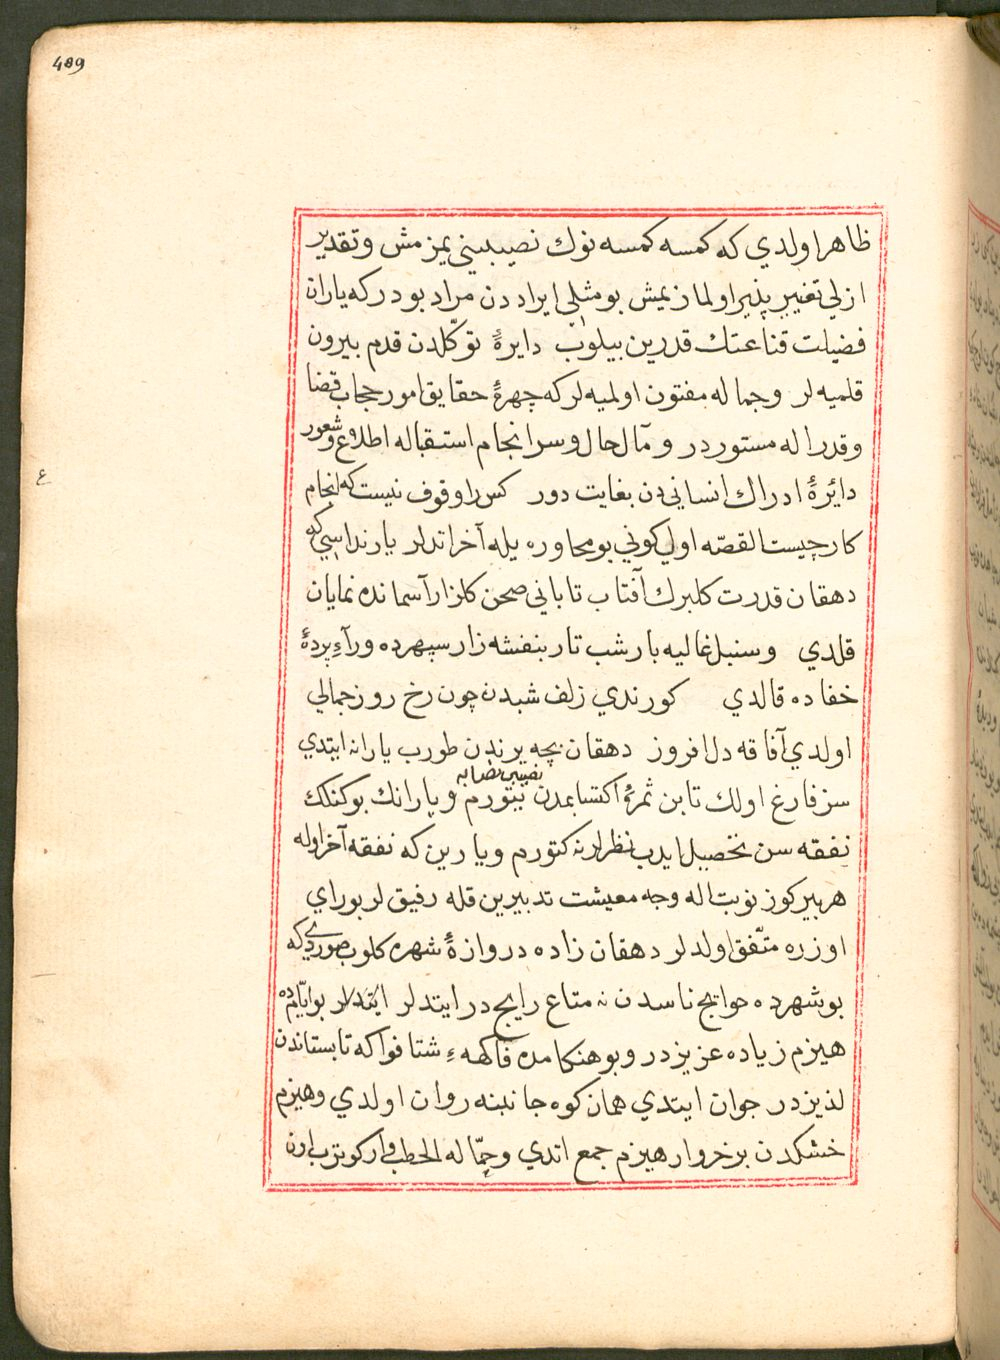 489
ظاهر اولدي كه كمسه كمسه نوك نصيبيني يمزمش وتقدير
ازلي تغيير پذير اولمازيمش بو مثلي ايراد دن مراد بودركه ياران
فضيلت قناعتك قدرين بيلوب دايرۀ توكّلدن قدم بيرون
قلميه لر وجماله مفتون اولميه لركه چهرۀ حقايق امور حجاب قضا
وقدراله مستوردر و مآل حال وسرانجام استقباله اطلاع وشعور
دائرۀ ادراك انساني دن بغايت دور كس را وقوف نيست كه انجام
كار چيست القصّه اول كوني بو محاوره يله آخر اتدلر يارنداسي كه
دهقان قدرت كلبرك آفتاب تاباني صحن كلزار آسمانده نمايان
قلدي وسنبل غاليه بار شب تار بنفشه زار سپهرده ورآءِ پردۀ
خفاده قالدي كورندي زلف شبدن چون رخ روز جمالي
اولدي آفاقه دل افروز دهقان بچه يرندن طورب يارانه ايتدي
سز فارغ اولك تا بن ثمرۀ اكتسابمدن نصيبى نصابه يتورم و يارانك بوكنلك
نفقه سن تحصيل ايدب نظرلرنه كتورم ويارين كه نفقه آخر اوله
هربير كوز نوبت اله وجه معيشت تدبيرين قله رفيق لر بوراي
اوزره متّفق اولدلر دهقان زاده دروازۀ شهره كلوب صوردي كه
بوشهرده حوايج ناسدن نه متاع رايج در ايتدلر بو ايّامده
هيزم زياده عزيزدر وبوهنكامده فاكههءِ شتا فواكه تابستاندن
لذيزدر جوان ايتدي همان كوه جانبنه روان اولدي وهيزم
خشكدن برخروار هيزم جمع اتدي وحمّاله الحطب وار كوترب اون
ع